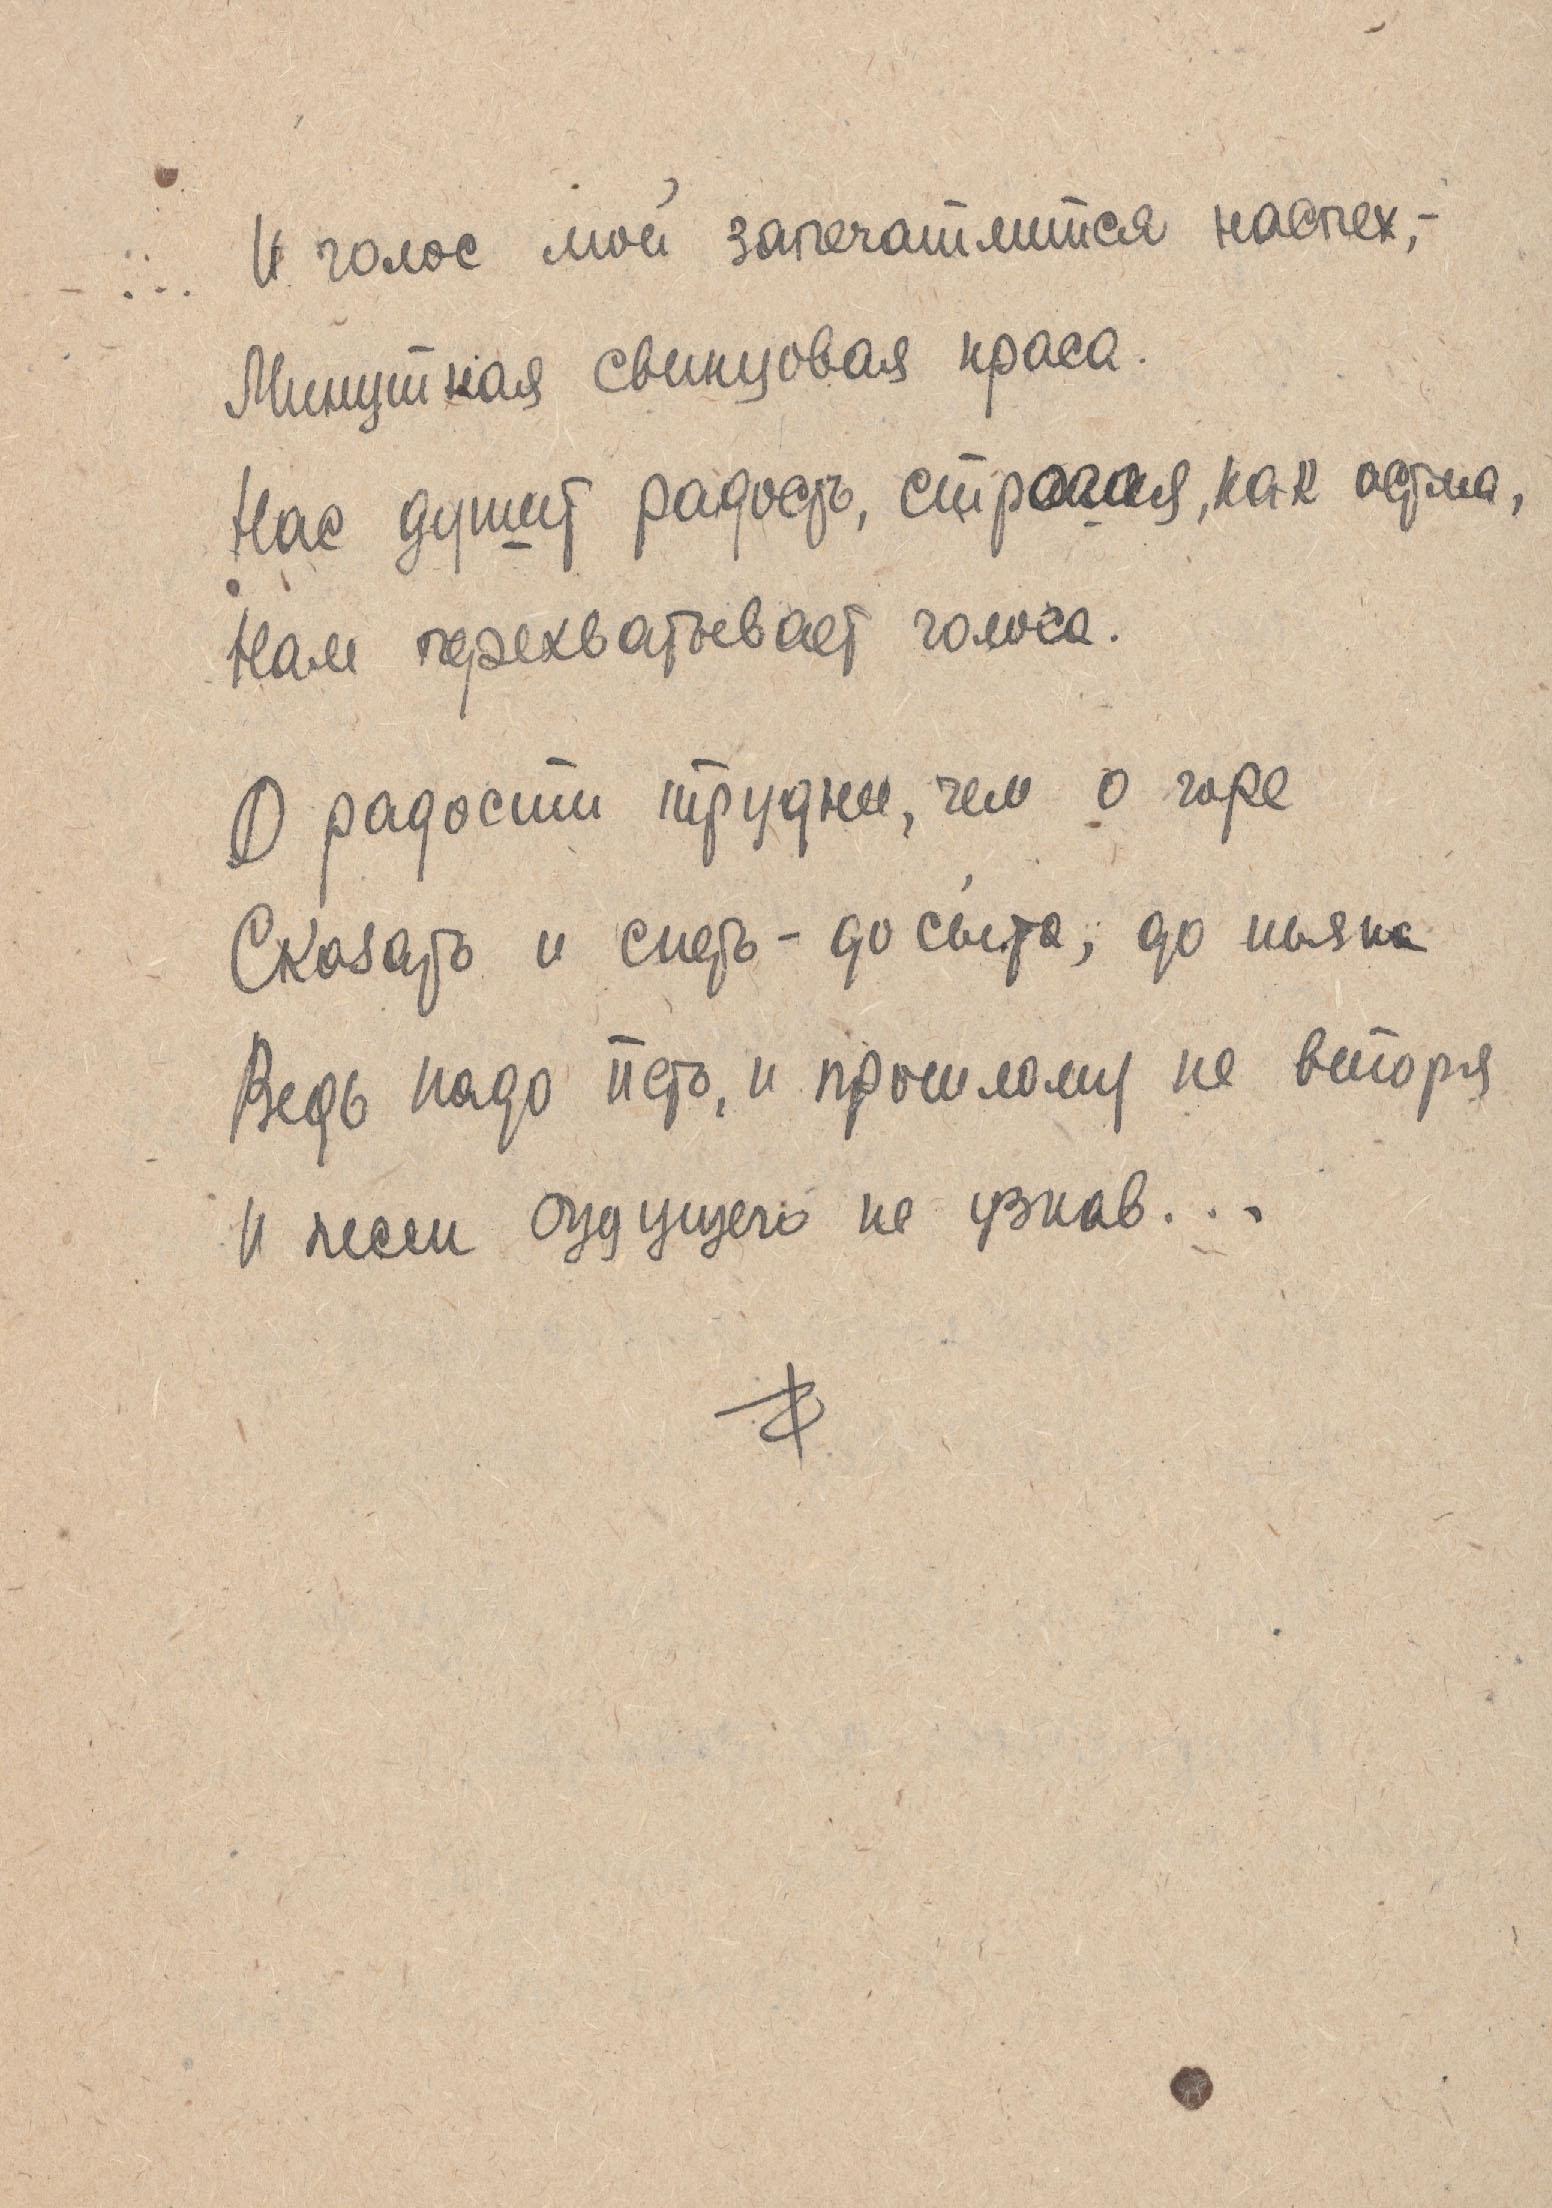 И голос мой запечатлится наспех, –
Минутная свинцовая краса.
Нас душит радость, строгая, как астма,
Нам перехватывает голоса.
О радости трудней, чем о горе
Сказать и спеть – до сы́та, до пьяна
Ведь надо петь, и прошлому не вторя
И песен будущего не узнав...